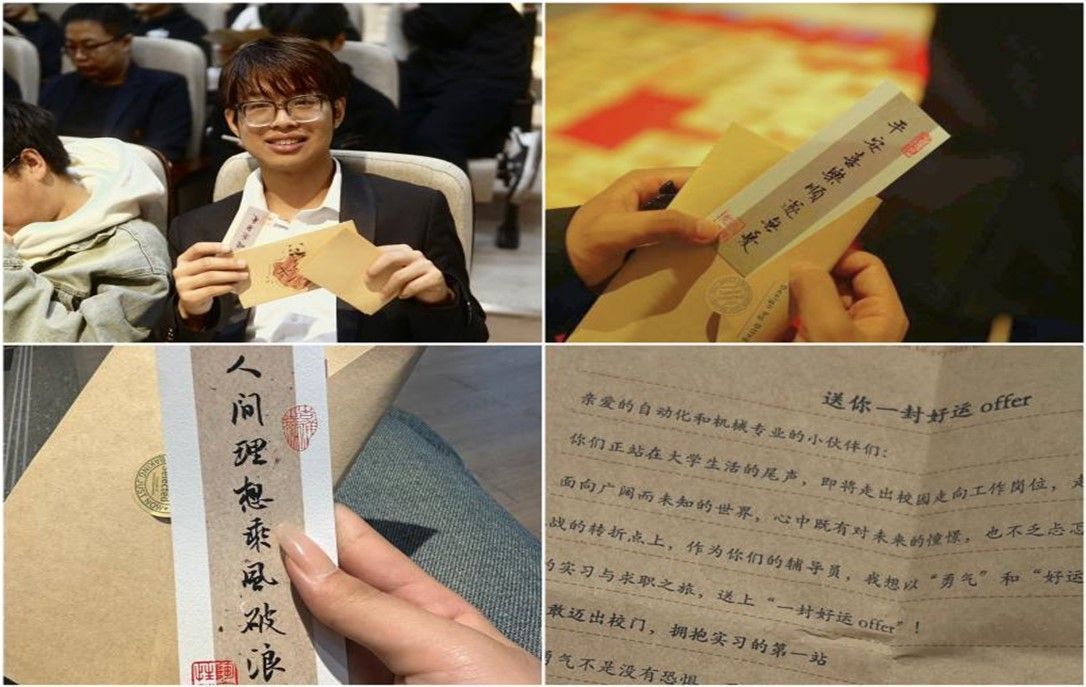 平安喜樂順遂無憂
Design by
人间理想乘風破浪
Selected
送你一封好运offer
亲爱的自动化和机械专业的小伙伴们：
你们正站在大学生活的尾声，即将走出校园走向工作岗位，走
面向广阔而未知的世界，心中既有对未来的憧憬，也不乏忐忑
战的转折点上，作为你们的辅导员，我想以“勇气”和“好运
的实习与求职之旅，送上“一封好运offer”！
敢迈出校门，拥抱实习的第一站
勇气不是没有恐惧